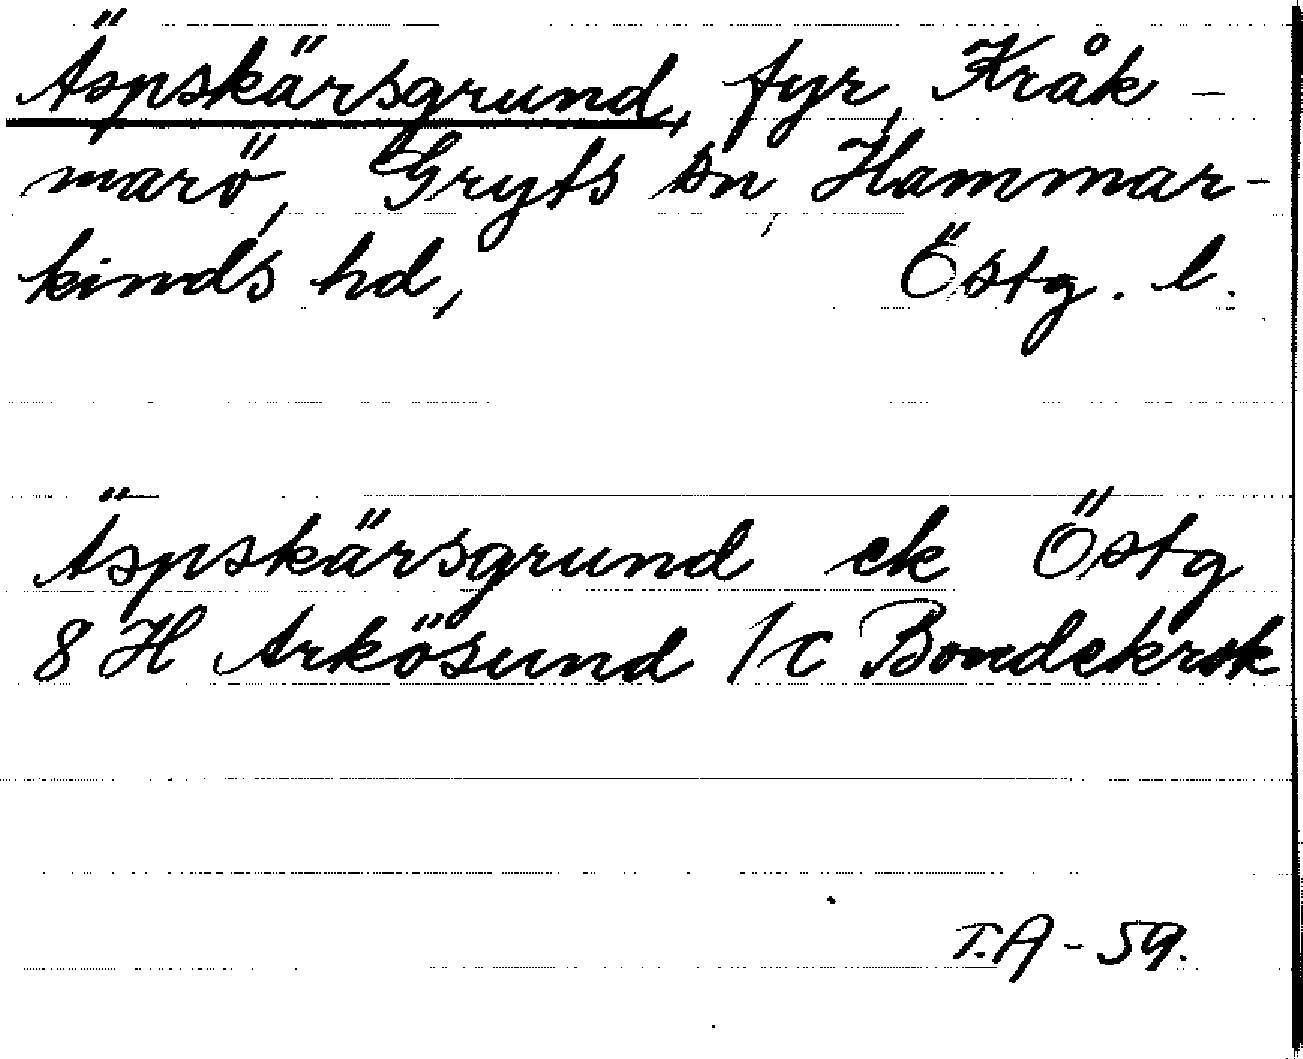 Äspskärsgrund, fyr, Kråk-
marö, Gryts sn, Hammar-
kinds hd, Östg. l.
Äspskärsgrund ek Östg
8 H Arkösund /c Bondekrok
T.A-59.